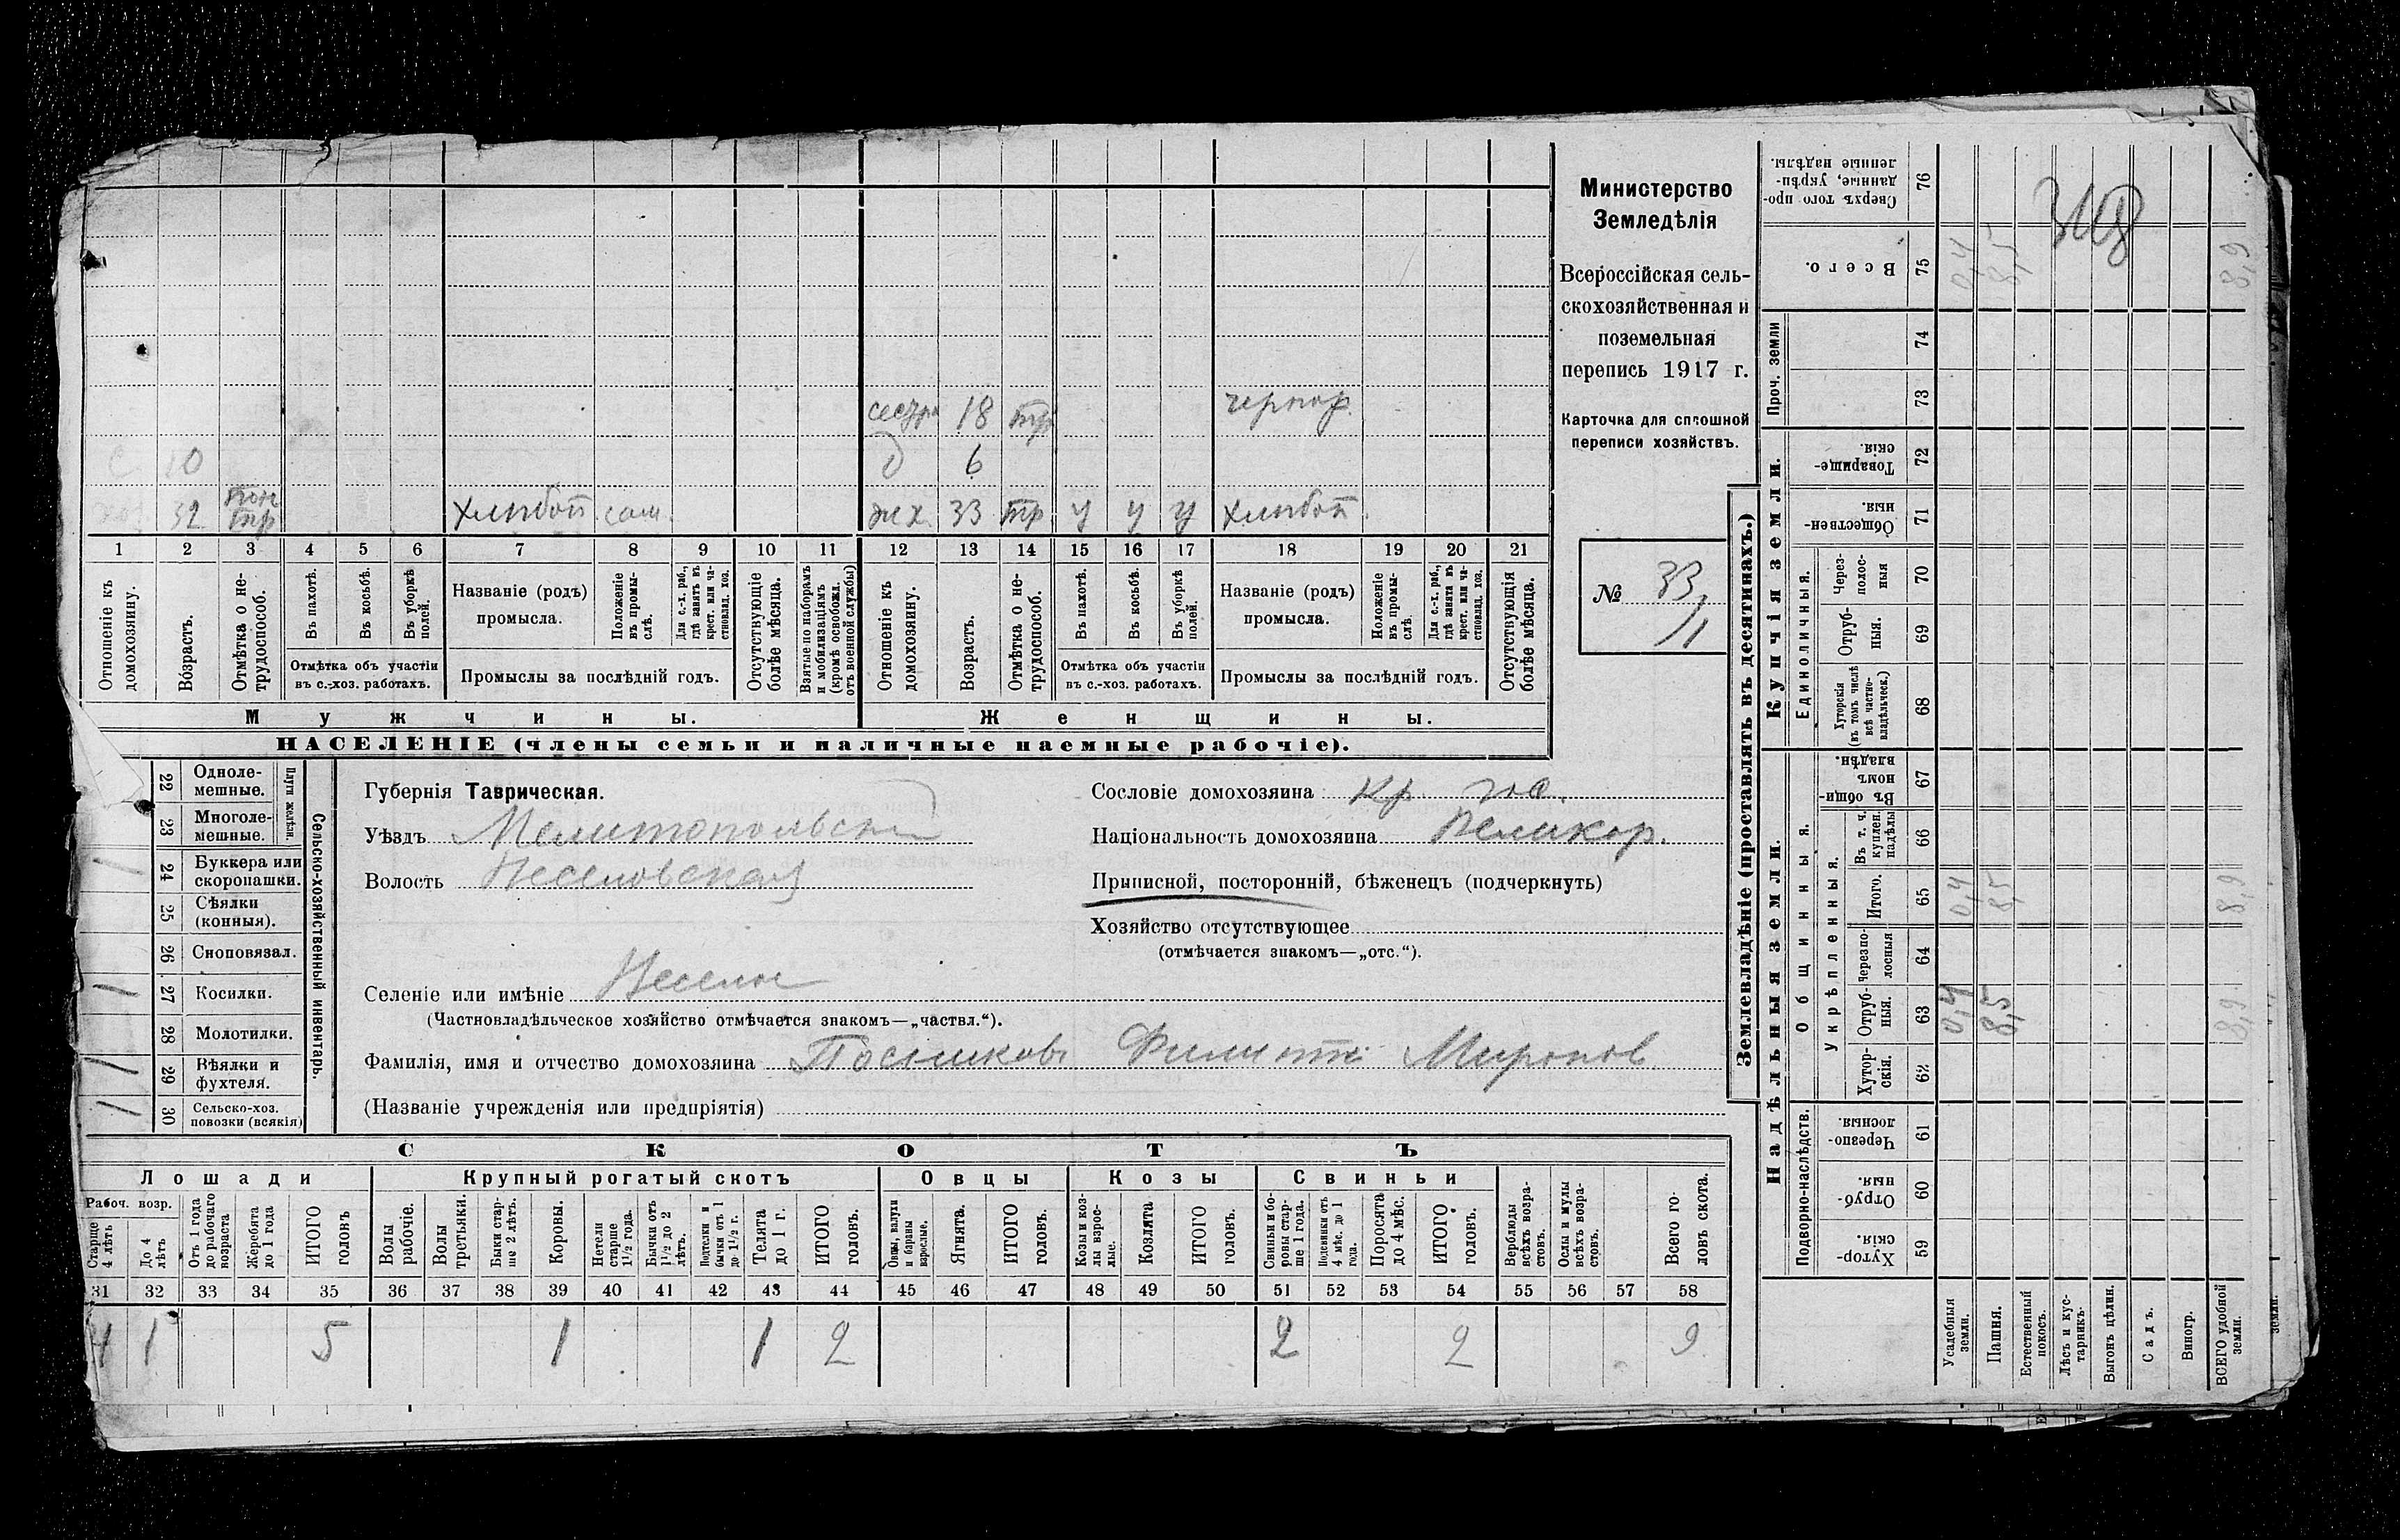 Министерство
Земледѣлія
Всероссійская сель-
скохозяйственная и
поземельная
перепись 1917 г.
Карточка для сплошной
переписи хозяйствъ.
№ 33/1
сестра 18 тр черпор.
с 10 д 6
хоз 32 тр Хлѣбоп. сам. жх. 33 тр у у у хлѣбоп.
1 2 3 4 5 6 7 8 9 10 11 12 13 14 15 16 17 18 19 20 21
Отношеніе къ домохозяину.
Возрастъ.
Отмѣтка о не-трудоспособ.
Въ пахотѣ.
Въ косьбѣ.
Въ уборкѣ полей.
Отмѣтка объ участіи въ с.-хоз. работахъ.
Названіе (родъ) промысла.
Положеніе въ промы-слѣ.
Для с.-х. раб., гдѣ занятъ въ крест. или ча-стновлад. хоз.
Промыслы за послѣдній годъ.
Отсутствующіе болѣе мѣсяца.
Взятые по наборамъ и мобилизаціямъ (кромѣ освобожд. отъ военной службы)
Отношеніе къ домохозяину.
Возрастъ.
Отмѣтка о не-трудоспособ.
Въ пахотѣ.
Въ косьбѣ.
Въ уборкѣ полей.
Отмѣтка объ участіи въ с.-хоз. работахъ.
Названіе (родъ) промысла.
Положеніе въ промы-слѣ.
Для с.-х. раб., гдѣ занята въ крест. или ча-стновлад. хоз.
Промыслы за послѣдній годъ.
Отсутствующія болѣе мѣсяца.
Мужчины. Женщины.
НАСЕЛЕНІЕ (члены семьи и наличные наемные рабочіе).
Сельско-хозяйственный инвентарь.
Плуги желѣзн.
22 Одноле-мешные.
23 Многоле-мешные.
24 Буккера или скоропашки. 1
25 Сѣялки (конныя).
26 Сноповязал.
27 Косилки. 1
28 Молотилки.
29 Вѣялки и фухтеля. 1 1
30 Сельско-хоз. повозки (всякія) 1 1
Губернія Таврическая.
Уѣздъ Мелитопольский
Волость Веселовская
Селеніе или имѣніе Веселое
(Частновладѣльческое хозяйство отмѣчается знакомъ—„частвл.“).
Фамилія, имя и отчество домохозяина Посников Филиппъ Миронов.
(Названіе учрежденія или предпріятія)
Сословіе домохозяина Кр. гос.
Національность домохозяина Великор.
Приписной, посторонній, бѣженецъ (подчеркнуть)
Хозяйство отсутствующее
(отмѣчается знакомъ—„отс.“).
СКОТЪ
Лошади Крупный рогатый скотъ Овцы Козы Свиньи
Рабоч. возр.
Старше 4 лѣтъ
До 4 лѣтъ
Отъ 1 года до рабочаго возраста
Жеребята до 1 года
ИТОГО головъ
Волы рабочіе.
Волы третьяки.
Быки стар-ше 2 лѣтъ.
Коровы.
Нетели старше 1½ года.
Бычки отъ 1½ до 2 лѣтъ.
Подтелки и бычки отъ 1 до 1½ г.
Телята до 1 г.
ИТОГО головъ.
Овцы, валухи и бараны взрослые.
Ягнята.
ИТОГО головъ.
Козы и коз-лы взрос-лые.
Козлята
ИТОГО головъ.
Свиньи и бо-ровы стар-ше 1 года.
Подсвинки отъ 4 мѣс. до 1 года.
Поросята до 4 мѣс.
ИТОГО головъ.
Верблюды всѣхъ возра-стовъ.
Ослы и мулы всѣхъ возра-стовъ.
Всего го-ловъ скота.
31 32 33 34 35 36 37 38 39 40 41 42 43 44 45 46 47 48 49 50 51 52 53 54 55 56 57 58
4 1 5 1 1 2 2 2 9
Землевладѣніе (проставлять въ десятинахъ.)
Надѣльныя земли.
Купчія земли.
Проч. земли
Подворно-наслѣдств.
Общинныя.
Укрѣпленныя.
Единоличныя.
Хутор-скія 59
Отруб-ныя. 60
Черезпо-лосныя. 61
Хутор-скія. 62
Отруб-ныя. 63 0,4 8,5 8,9
Черезпо-лосныя 64
Итого. 65 0,4 8,5 8,9
Въ т. ч. куплен. надѣлы 66
Въ общи-номъ владѣн. 67
Хуторскія (въ томъ числѣ всѣ частно-владѣльческ.) 68
Отруб-ныя. 69
Через-полос-ныя 70
Обществен-ныя. 71
Товарище-скія. 72
73
74
Всего. 75 0,4 8,5 8,9
Сверхъ того про-данные, укрѣп-ленные надѣлы. 76
Усадебныя земли.
Пашня.
Естественный покосъ.
Лѣсъ и кус-тарникъ.
Выгонъ цѣлин.
Садъ.
Виногр.
ВСЕГО удобной земли.
земли.